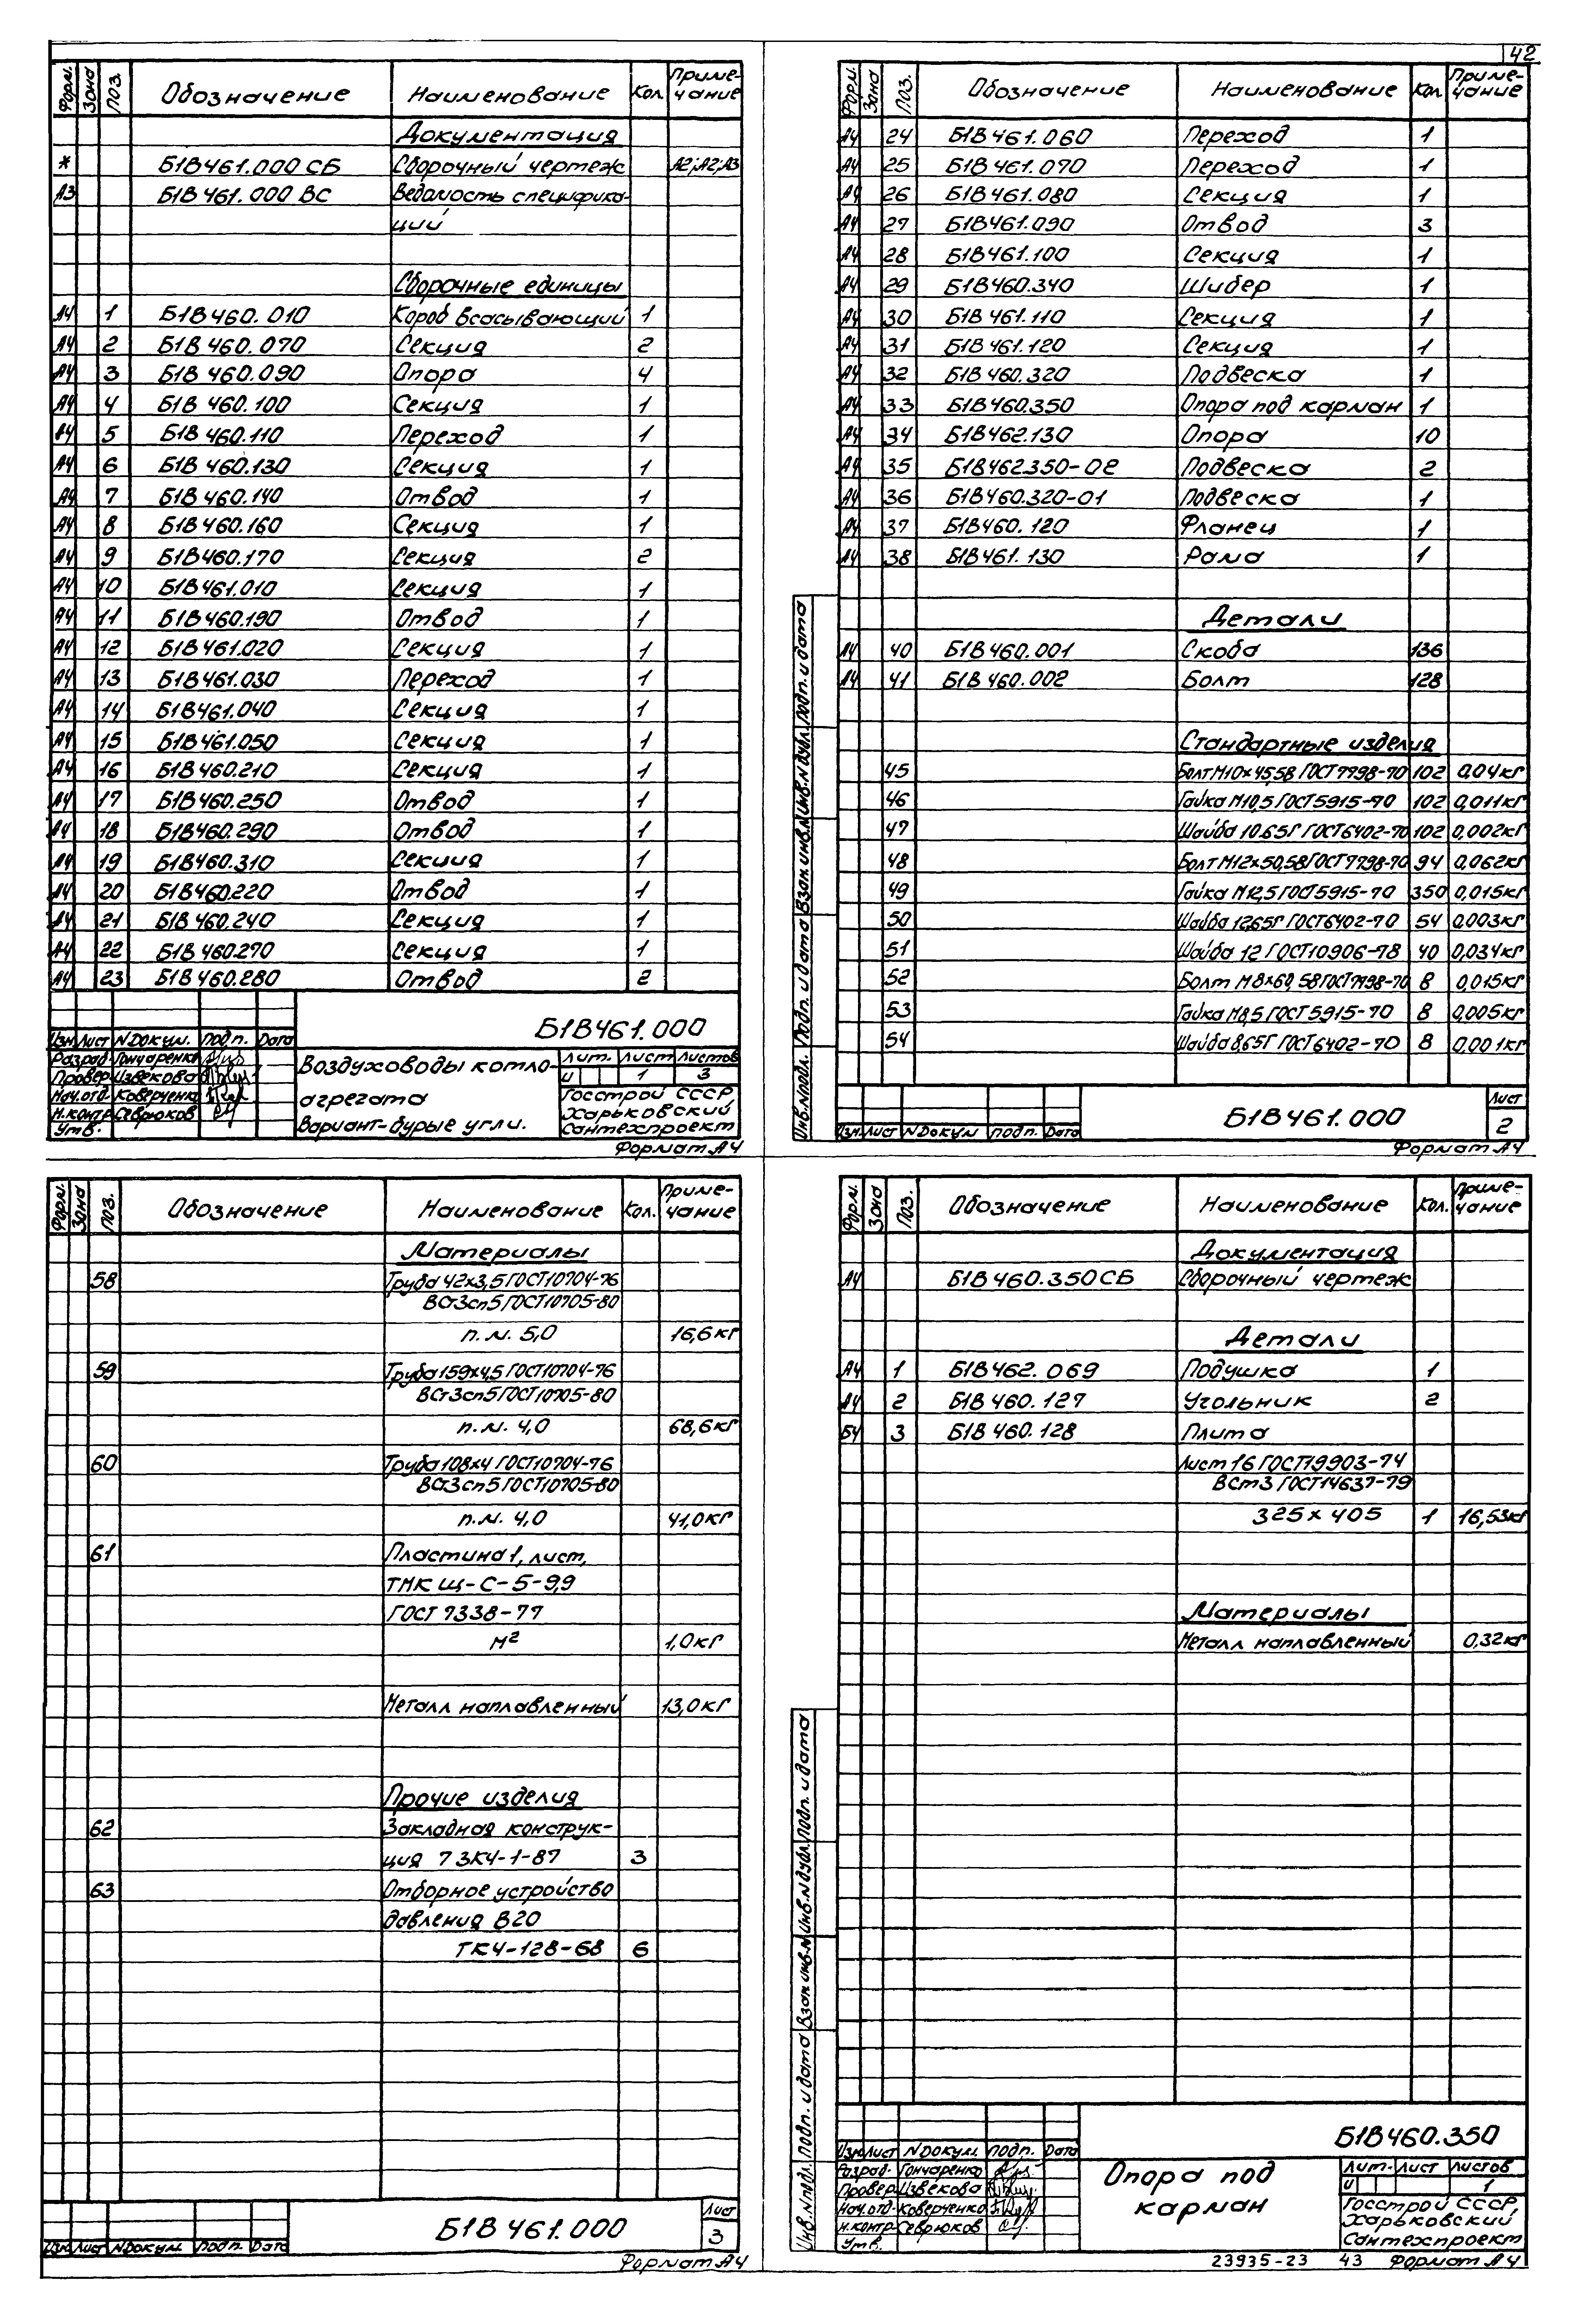 42
Форм. Зона Поз. Обозначение Наименование Кол. Приме-
чание
Документация
* Б1В461.000 СБ Сборочный чертеж А2;А2;А3
А3 Б1В461.000 ВС Ведомость специфика-
ций
Сборочные единицы
А4 1 Б1В460.010 Короб всасывающий 1
А4 2 Б1В460.070 Секция 2
А4 3 Б1В460.090 Опора 4
А4 4 Б1В460.100 Секция 1
А4 5 Б1В460.110 Переход 1
А4 6 Б1В460.130 Секция 1
А4 7 Б1В460.140 Отвод 1
А4 8 Б1В460.160 Секция 1
А4 9 Б1В460.170 Секция 2
А4 10 Б1В461.010 Секция 1
А4 11 Б1В460.190 Отвод 1
А4 12 Б1В461.020 Секция 1
А4 13 Б1В461.030 Переход 1
А4 14 Б1В461.040 Секция 1
А4 15 Б1В461.050 Секция 1
А4 16 Б1В460.210 Секция 1
А4 17 Б1В460.250 Отвод 1
А4 18 Б1В460.290 Отвод 1
А4 19 Б1В460.310 Секция 1
А4 20 Б1В460.220 Отвод 1
А4 21 Б1В460.240 Секция 1
А4 22 Б1В460.270 Секция 1
А4 23 Б1В460.280 Отвод 2
Б1В461.000
Изм. Лист N Докум. Подп. Дата
Разраб. Гончаренко
Провер. Извекова
Нач.отд. Коверченко
Н.контр. Севрюков
Утв.
Воздуховоды котло-
агрегата
Вариант-бурые угли.
Лит. Лист Листов
И 1 3
Госстрой СССР
Харьковский
Сантехпроект
Формат А4
Форм. Зона Поз. Обозначение Наименование Кол. Приме-
чание
А4 24 Б1В461.060 Переход 1
А4 25 Б1В461.070 Переход 1
А4 26 Б1В461.080 Секция 1
А4 27 Б1В461.090 Отвод 3
А4 28 Б1В461.100 Секция 1
А4 29 Б1В460.340 Шибер 1
А4 30 Б1В461.110 Секция 1
А4 31 Б1В461.120 Секция 1
А4 32 Б1В460.320 Подвеска 1
А4 33 Б1В460.350 Опора под карман 1
А4 34 Б1В462.130 Опора 10
А4 35 Б1В462350-02 Подвеска 2
А4 36 Б1В460.320-01 Подвеска 1
А4 37 Б1В460.120 Фланец 1
А4 38 Б1В461.130 Рама 1
Детали
А4 40 Б1В460.001 Скоба 136
А4 41 Б1В460.002 Болт 128
Стандартные изделия
45 Болт М10×45,58 ГОСТ7798-70 102 0,04кг
46 Гайка М10,5 ГОСТ5915-70 102 0,011кг
47 Шайба 10.65Г ГОСТ6402-70 102 0,002кг
48 Болт М12×50,58 ГОСТ7798-70 94 0,062кг
49 Гайка М12,5 ГОСТ5915-70 350 0,015кг
50 Шайба 12,65Г ГОСТ6402-70 54 0,003кг
51 Шайба 12 ГОСТ10906-78 40 0,034кг
52 Болт М8×60,58 ГОСТ7798-70 8 0,015кг
53 Гайка М8,5 ГОСТ5915-70 8 0,005кг
54 Шайба 8,65Г ГОСТ6402-70 8 0,001кг
Инв.N подл. Подп. и дата Взам инв.N Инв.N дубл. Подп. и дата
Изм. Лист N Докум Подп. Дата
Б1В461.000
Лист
2
Формат А4
Форм. Зона Поз. Обозначение Наименование Кол. Приме-
чание
Материалы
58 Труба 42×3,5 ГОСТ10704-76
ВСт3сп5 ГОСТ10705-80
п.м. 5,0 16,6кг
59 Труба 159×4,5 ГОСТ10704-76
ВСт3сп5 ГОСТ10705-80
п.м. 4,0 68,6кг
60 Труба 108×4 ГОСТ10704-76
ВСт3сп5 ГОСТ10705-80
п.м. 4,0 41,0кг
61 Пластина 1, лист,
ТМКЩ-С-5-9,9
ГОСТ 7338-77
м² 1,0кг
Металл наплавленный 13,0кг
Прочие изделия
62 Закладная конструк-
ция 7 ЗК4-1-87 3
63 Отборное устройство
давления В20
ТК4-128-68 6
Изм. Лист N Докум. Подп. Дата
Б1В461.000
Лист
3
Формат А4
Форм. Зона Поз. Обозначение Наименование Кол. Приме-
чание
Документация
А4 Б1В460.350СБ Сборочный чертеж
Детали
А4 1 Б1В462.069 Подушка 1
А4 2 Б1В460.127 Угольник 2
БЧ 3 Б1В460.128 Плита
Лист 16 ГОСТ19903-74
ВСт3 ГОСТ14637-79
325×405 1 16,53кг
Материалы
Металл наплавленный 0,32кг
Инв.N подл. Подп. и дата Взам инв.N Инв.N дубл. Подп. и дата
Б1В460.350
Изм. Лист N Докум. Подп. Дата
Разраб. Гончаренко
Провер. Извекова
Нач.отд. Коверченко
Н.контр. Севрюков
Утв.
Опора под
карман
Лит. Лист Листов
И 1
Госстрой СССР,
Харьковский
Сантехпроект
23935-23 43 Формат А4